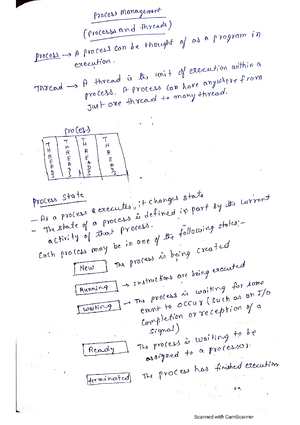 Process Management
(Processes and threads)
Process → A process can be thought of as a program in
execution.
Thread → A thread is the unit of execution within a
process. A process can have anywhere from
just one thread to many thread.
Process
THREAD THREAD THREAD THREAD
Process State
- As a process executes, it changes state
- The state of a process is defined in part by the current
activity of that process.
Each process may be in one of the following states:-
New The process is being created
Running → instructions are being executed
Waiting → The process is waiting for some
event to occur (such as an I/O
completion or reception of a
signal)
Ready The process is waiting to be
assigned to a processor.
Terminated The process has finished execution
Scanned with CamScanner